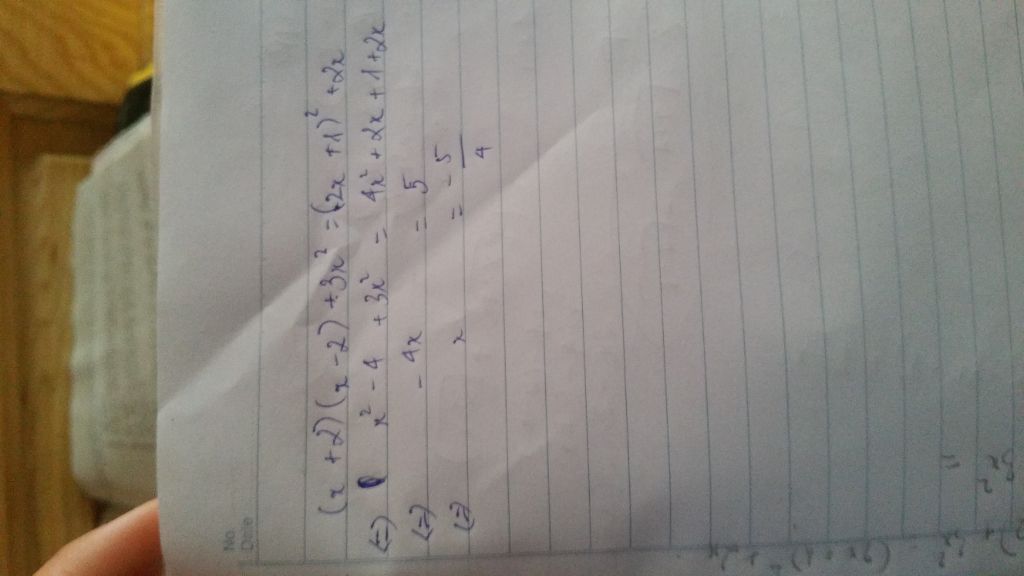 No.
Date
(x + 2)(x - 2) + 3x² = (2x + 1)² + 2x
(=) x² - 4 + 3x² = 4x² + 2x + 1 + 2x
(=) - 4x = 5
(=) x = - 5/4